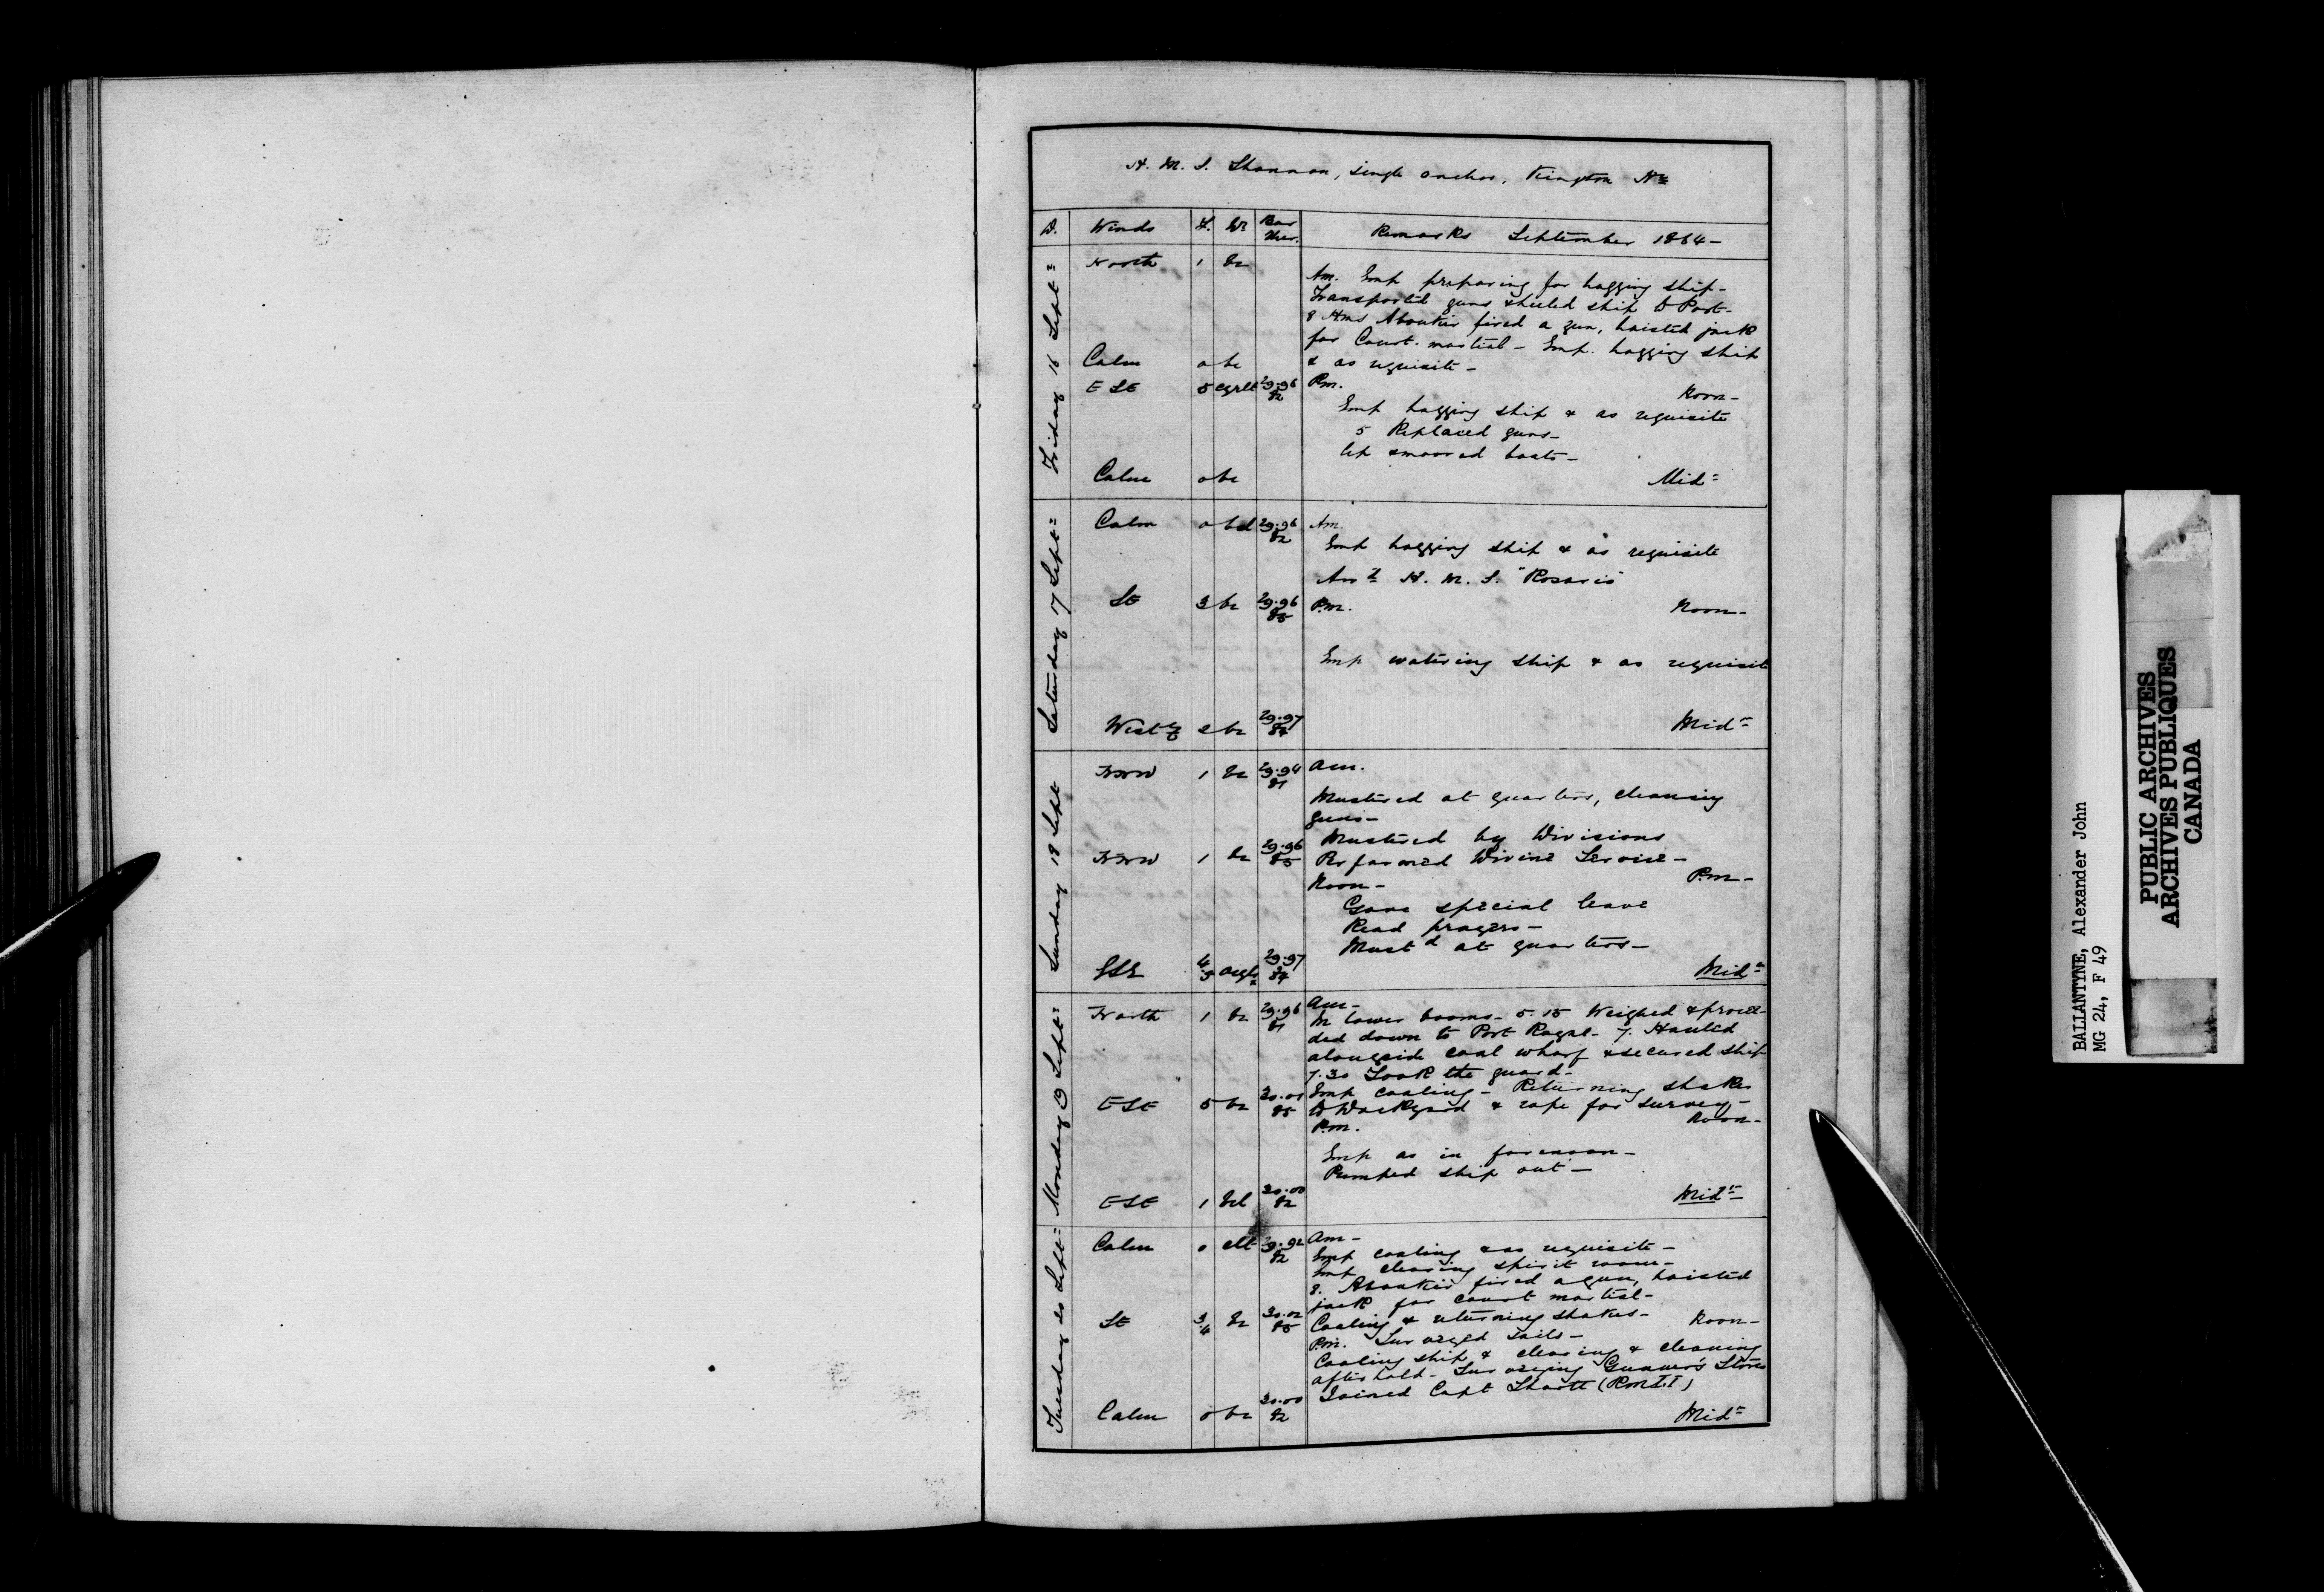 H. M. S. Shannon, single anchor, Kingston Hr
D. Winds F. Wr Bar Ther. Remarks September 1864-
Friday 16 Sept=
North 1 bc
Am. Emp preparing for hogging ship-
Transported guns & heeled ship to Port-
8 Hms Aboukir fired a gun, hoisted jack
for Court-martial- Emp. hogging ship
Calm 0 bc & as requisite-
ESE 5 cgrlt 29.96 82 Pm. Noon-
Emp hogging ship & as requisite
5 Replaced guns-
Up & moored boats-
Calm 0 bc Mid=
Saturday 17 Sept=
Calm 0 bcl 29.96 82 Am.
Emp hogging ship & as requisite
Arrd H. M. S. "Rosario"
SE 3 bc 29.96 85 P.m. Noon-
Emp watering ship & as requisite
Westly 2 bc 29.97 84 Mid=
Sunday 18 Sept
NNW 1 bc 29.94 81 Am.
Mustered at quarters, cleaning
guns-
Mustered by Divisions
NNW 1 bc 29.96 85 Performed Divine Service-
Noon- P.m-
Gave special leave
Read prayers-
Mustd at quarters-
SSE 4.5 29.97 84 Mid=
Monday 19 Sept=
North 1 bc 29.96 81 Am-
In lower booms- 5.15 Weighed & procee-
ded down to Port Royal- 7. Hauled
alongside coal wharf & secured ship
7.30 Took the guard-
Emp coaling- Returning shakes
ESE 5 bc 30.01 85 to Dockyard & rope for survey-
P.m. Noon-
Emp as in forenoon-
Pumped ship out-
ESE 1 bcl 30.00 82 Mid=
Tuesday 20 Sept=
Calm 0 clt 29.92 82 Am-
Emp coaling & as requisite-
Emp clearing spirit room-
8. Aboukir fired a gun, hoisted
jack for court martial-
SE 3.4 bc 30.02 85 Coaling & returning shakes- Noon-
P.m. Surveyed sails-
Coaling ship & clearing & cleaning
after hold- Surveying Gunner's Stores
Joined Capt Shortt (RMLI)
Calm 0 bc 30.00 82 Mid=
BALLANTYNE, Alexander John
MG 24, F 49
PUBLIC ARCHIVES
ARCHIVES PUBLIQUES
CANADA